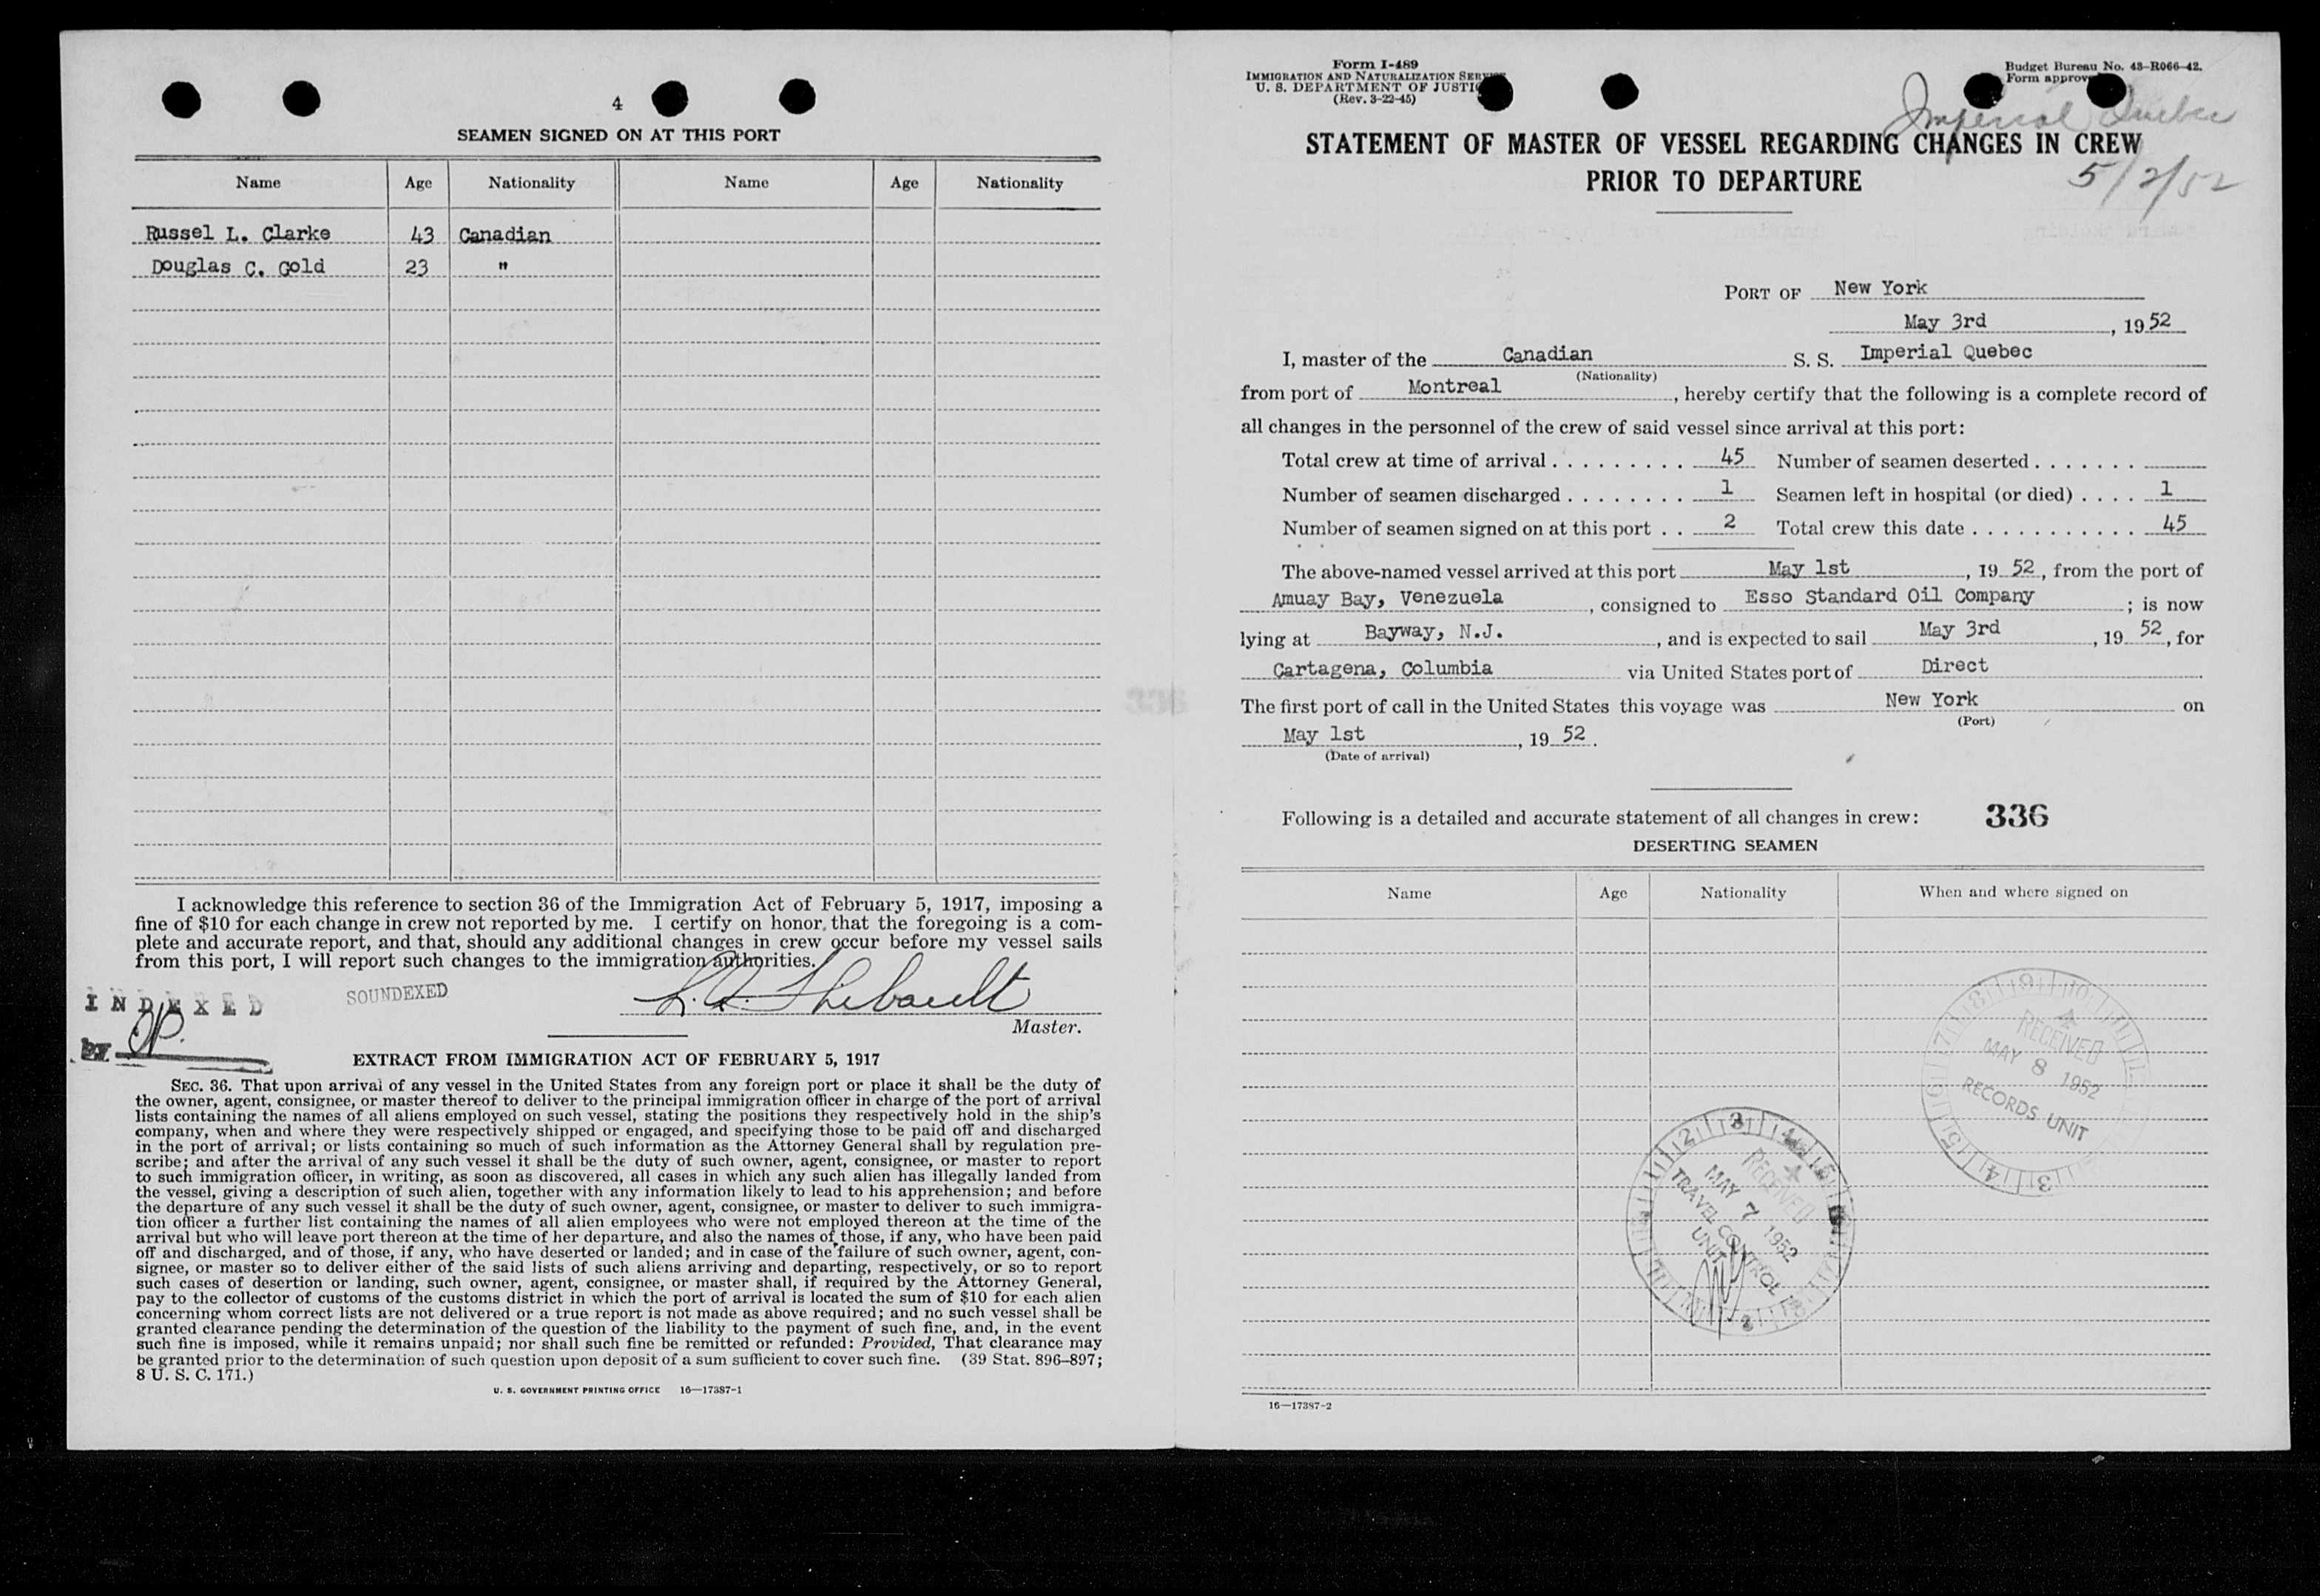 4
SEAMEN SIGNED ON AT THIS PORT
Name Age Nationality Name Age Nationality
Russel L. Clarke 43 Canadian
Douglas C. Gold 23 "
I acknowledge this reference to section 36 of the Immigration Act of February 5, 1917, imposing a
fine of $10 for each change in crew not reported by me. I certify on honor that the foregoing is a com-
plete and accurate report, and that, should any additional changes in crew occur before my vessel sails
from this port, I will report such changes to the immigration authorities.
INDEXED SOUNDEXED
by
Master.
EXTRACT FROM IMMIGRATION ACT OF FEBRUARY 5, 1917
SEC. 36. That upon arrival of any vessel in the United States from any foreign port or place it shall be the duty of
the owner, agent, consignee, or master thereof to deliver to the principal immigration officer in charge of the port of arrival
lists containing the names of all aliens employed on such vessel, stating the positions they respectively hold in the ship's
company, when and where they were respectively shipped or engaged, and specifying those to be paid off and discharged
in the port of arrival; or lists containing so much of such information as the Attorney General shall by regulation pre-
scribe; and after the arrival of any such vessel it shall be the duty of such owner, agent, consignee, or master to report
to such immigration officer, in writing, as soon as discovered, all cases in which any such alien has illegally landed from
the vessel, giving a description of such alien, together with any information likely to lead to his apprehension; and before
the departure of any such vessel it shall be the duty of such owner, agent, consignee, or master to deliver to such immigra-
tion officer a further list containing the names of all alien employees who were not employed thereon at the time of the
arrival but who will leave port thereon at the time of her departure, and also the names of those, if any, who have been paid
off and discharged, and of those, if any, who have deserted or landed; and in case of the failure of such owner, agent, con-
signee, or master so to deliver either of the said lists of such aliens arriving and departing, respectively, or so to report
such cases of desertion or landing, such owner, agent, consignee, or master shall, if required by the Attorney General,
pay to the collector of customs of the customs district in which the port of arrival is located the sum of $10 for each alien
concerning whom correct lists are not delivered or a true report is not made as above required; and no such vessel shall be
granted clearance pending the determination of the question of the liability to the payment of such fine, and, in the event
such fine is imposed, while it remains unpaid; nor shall such fine be remitted or refunded: Provided, That clearance may
be granted prior to the determination of such question upon deposit of a sum sufficient to cover such fine. (39 Stat. 896–897;
8 U. S. C. 171.)
U. S. GOVERNMENT PRINTING OFFICE 16—17387-1
Form I-489
IMMIGRATION AND NATURALIZATION
U. S. DEPARTMENT OF
(Rev. 3-22-45)
Budget Bureau No. 43-R066-42.
Form
Imperial Quebec
STATEMENT OF MASTER OF VESSEL REGARDING CHANGES IN CREW
PRIOR TO DEPARTURE
5/2/52
PORT OF New York
May 3rd, 1952
I, master of the Canadian S. S. Imperial Quebec
(Nationality)
from port of Montreal, hereby certify that the following is a complete record of
all changes in the personnel of the crew of said vessel since arrival at this port:
Total crew at time of arrival . . . . . . . . . 45 Number of seamen deserted . . . . . . .
Number of seamen discharged . . . . . . . . 1 Seamen left in hospital (or died) . . . . 1
Number of seamen signed on at this port . . 2 Total crew this date . . . . . . . . . . . 45
The above-named vessel arrived at this port May 1st, 19 52, from the port of
Amuay Bay, Venezuela, consigned to Esso Standard Oil Company; is now
lying at Bayway, N.J., and is expected to sail May 3rd, 19 52, for
Cartagena, Columbia via United States port of Direct
The first port of call in the United States this voyage was New York on
(Port)
May 1st, 19 52.
(Date of arrival)
Following is a detailed and accurate statement of all changes in crew: 336
DESERTING SEAMEN
Name Age Nationality When and where signed on
RECEIVED
MAY 8 1952
RECORDS UNIT
RECEIVED
MAY 7 1952
TRAVEL CONTROL
UNIT
16—17387-2